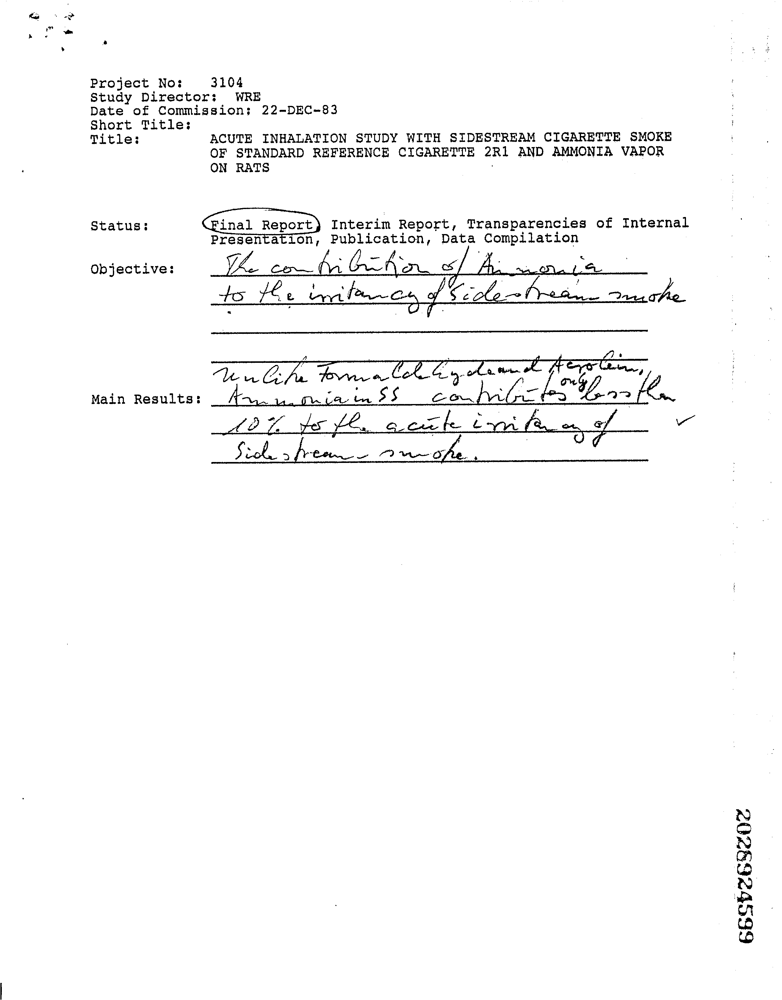 Project No: 3104
Study Director: WRE
Date of Commission: 22-DEC-83
Short Title:
Title: ACUTE INHALATION STUDY WITH SIDESTREAM CIGARETTE SMOKE
OF STANDARD REFERENCE CIGARETTE 2R1 AND AMMONIA VAPOR
ON RATS
Status: Final Report, Interim Report, Transparencies of Internal
Presentation, Publication, Data Compilation
Objective: The contribution of Ammonia
to the irritancy of Sidestream smoke
Unlike Formaldehyde and Acrolein,
Main Results: Ammonia in SS contributes only less than
10% to the acute irritancy of
Sidestream smoke.
2028924599